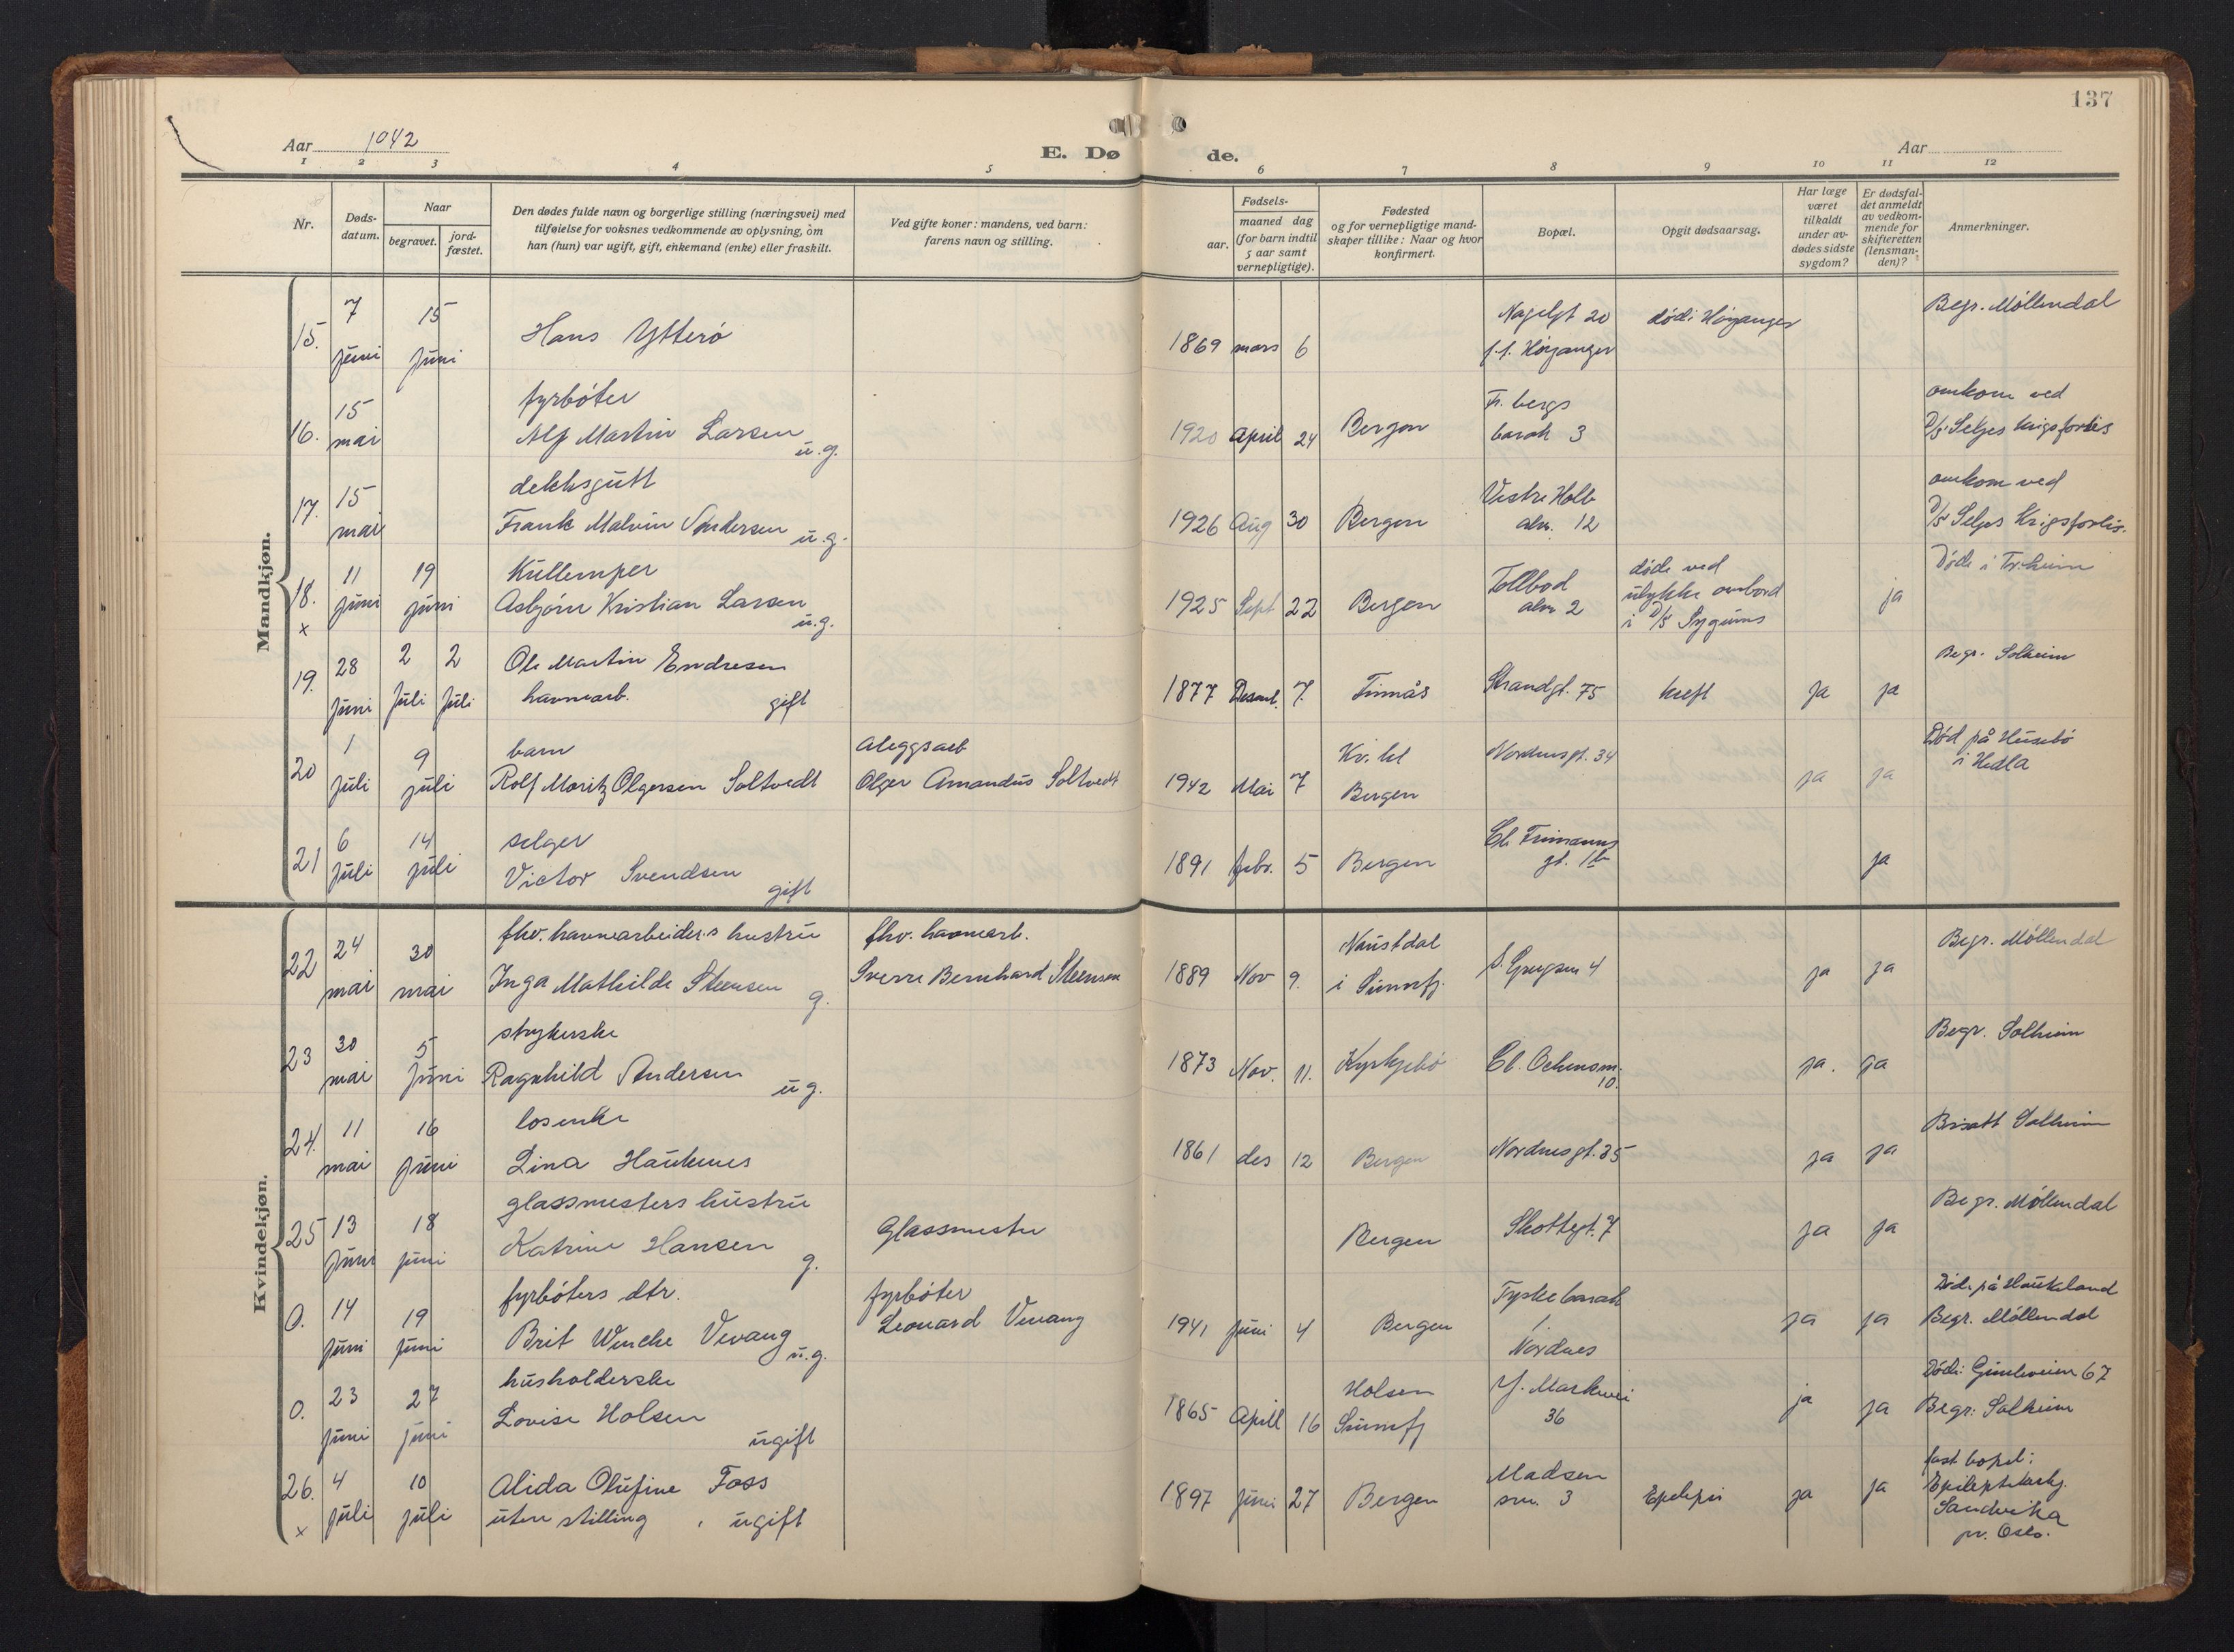 137
Aar 1942
E. Dø de.
Aar
1 2 3 4 5 6 7 8 9 10 11 12
Nr.
Døds-
datum.
Naar
begravet.
jord-
fæstet.
Den dødes fulde navn og borgerlige stilling (næringsvei) med
tilføielse for voksnes vedkommende av oplysning, om
han (hun) var ugift, gift, enkemand (enke) eller fraskilt.
Ved gifte koner: mandens, ved barn:
farens navn og stilling.
Fødsels-
aar.
maaned dag
(for barn indtil
5 aar samt
vernepligtige).
Fødested
og for vernepligtige mand-
skaper tillike: Naar og hvor
konfirmert.
Bopæl.
Opgit dødsaarsag.
Har læge
været
tilkaldt
under av-
dødes sidste
sygdom?
Er dødsfal-
det anmeldt
av vedkom-
mende for
skifteretten
(lensman-
den)?
Anmerkninger.
Mandkjøn.
7 15 Nagelgt 20 død i Høyanger Begr. Møllendal
15. juni juni Hans Ytterø 1869 mars 6 f.t. Høyanger
15 fyrbøter Fr. bergs omkom ved
16. mai Alf Martin Larsen u.g. 1920 April 24 Bergen barak 3 D/S Seljes krigsforlis
15 dekksgutt Vestre Holb omkom ved
17. mai Frank Malvin Andersen u.g. 1926 Aug 30 Bergen alm. 12 D/S Seljes krigsforlis.
11 19 Kullemper Tollbod døde ved Døde i Tr.heim
18. juni juni Asbjørn Kristian Larsen u.g. 1925 Sept 22 Bergen alm 2 ulykke ombord ja
x i D/S
28 2 2 Ole Martin Endresen Begr. Solheim
19. juni juli juli havnearb. gift 1877 Desemb. 7. Strandgt. 75 kreft ja ja
1 9 barn Aleggsarb Kv. kl Nordnesgt. 34 Død på Husebø
20 juli juli Rolf Moritz Olgersen Soltvedt Olger Amandus Soltvedt 1942 Mai 7 Bergen ja ja i Hedla
6 14 selger Cl. Frimanns
21 juli juli Victor Svendsen gift 1891 febr. 5 Bergen gt. 1b ja
Kvindekjøn.
24 30 fhv. havnearbeiders hustru fhv. havnearb. Naustdal Begr. Møllendal
22 mai mai Inga Mathilde Steensen g. Sverre Bernhard Steensen 1889 Nov 9. i Sunnfj. 4 ja ja
30 5 strykerske Begr. Solheim
23 mai juni Ragnhild Andersen u.g. 1873 Nov. 11. Kyrkjebø Cl. Ockensm. 10. ja. ja
11 16 losenke Bisatt Solheim
24. mai juni Lina Haukenes 1861 des 12 Bergen Nordnesgt. 35 ja ja
13 18 glassmesters hustru Glassmester Begr. Møllendal
25 juni juni Katrine Hansen g. Bergen Skottegt. 7 ja ja
14 19 fyrbøters dtr. fyrbøter Tyskebarak Døde på Haukeland
0. juni juni Brit Wenche Vevang u.g. Leonard Vevang 1941 juni 4 Bergen 1 Nordnes ja ja Begr. Møllendal
23 27 husholderske Holsen Y. Markevei Døde: Gimleveien 67
0. juni juni Lovise Holsen ugift 1865 April 16 Sunnfj 36 ja ja Begr: Solheim
4 10 Alida Olufine Foss Madsen fast bopel:
26. juli juli uten stilling, ugift 1897 juni 27 Bergen sm. 3 Epelepsi ja ja
x Sandvika
pr. Oslo.